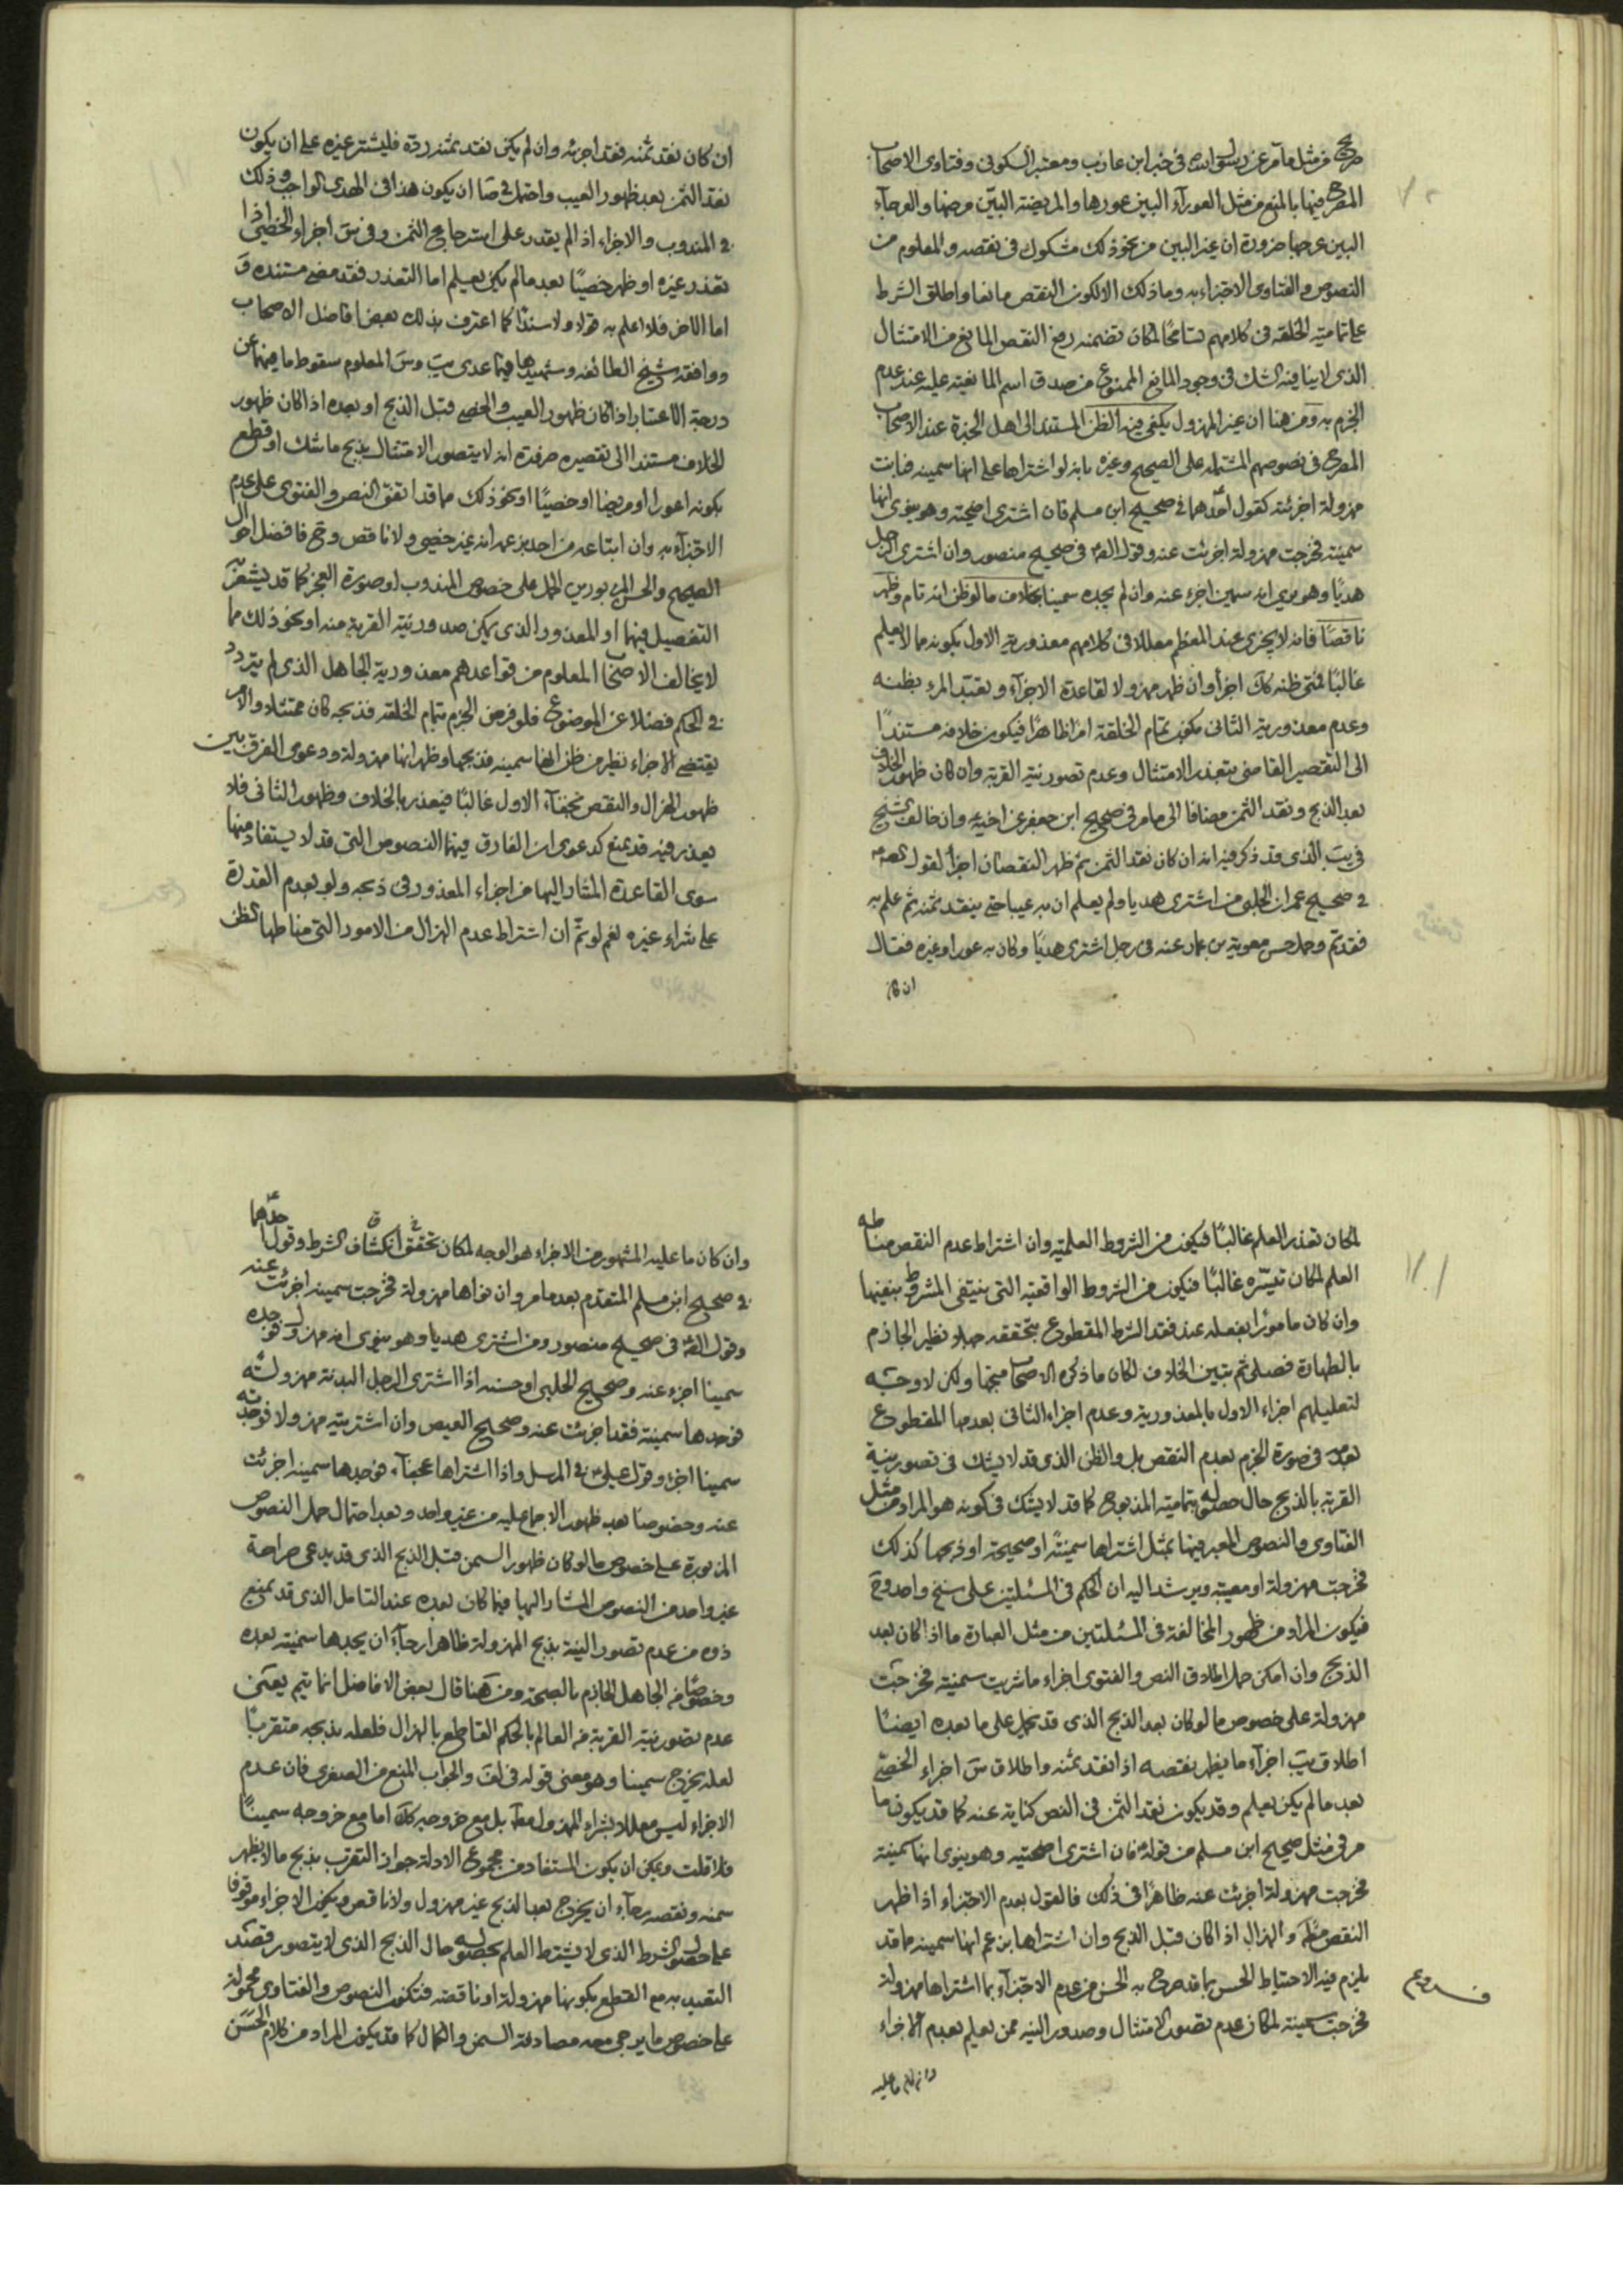 صريح من مثل ما مر عن رسول الله في خبر ابن عازب ومعتبر السكوني وفتاوى الاصحاب
المصرح فيها بالمنع من مثل العوراء البين عورها والمريضة البين مرضها والعرجاء
البين عرجها ضرورة ان غير البين من نحو ذلك مشكوك في نقصه والمعلوم من
النصوص والفتاوى الاجتزاء به وما ذلك الا لكون النقص مانعا واطلاق الشرط
على تمامية الخلقه في كلامهم تسامحا لمكان تضمنه رفع النقص المانع من الامتثال
الذي لا ينافيه الشك في وجود المانع الممنوع من صدق اسم المانعية عليه عند عدم
الجزم به ومن هنا ان غير المهزول يكفي فيه الظن المستند الى اهل الخبرة عند الاصحاب
المصرح في نصوصهم المشتمله على الصحيح وغيره بانه لو اشتراها على انها سمينه فبانت
مهزولة اجزئته كقول احدهما في صحيح ابن مسلم فان اشترى اضحيته وهو ينوى انها
سمينة فخرجت مهزولة اجزئت عنه وقول الصم في صحيح منصور وان اشترى الرجل
هديا وهو يرى انه سمين اجزء عنه وان لم يجده سمينا بخلاف ما لو ظن انه تام وظهر
ناقصا فانه لا يجزى عند المعظم معللا في كلامهم معذورية الاول بكونه مما لا يعلم
غالبا فمتى ظنه كك اجزأ وان ظهر مهزولا لقاعدة الاجزاء وتعبد المرء بظنه
وعدم معذورية الثاني بكون تمام الخلقة امرا ظاهرا فيكون خلافه مستندا
الى التقصير القاضي بتعذر الامتثال وعدم تصور نية القربة وان كان ظهور الخلاف
بعد الذبح ونقد الثمن مضافا الى ما مر في صحيح ابن جعفر عن اخيه وان خالف الشيخ
في يب الذي قد ذكر فيه انه ان كان نقد الثمن ثم ظهر النقصان اجزأ لقول الصم
في صحيح عمران الحلبي من اشترى هديا ولم يعلم ان به عيبا حتى ينقد ثمنه ثم علم به
فقد تم وحمل حسن معوية بن عمار عنه في رجل اشترى هديا وكان به عور او غيره فقال
ان كان
ان كان نقد ثمنه فقد اجزئه وان لم يكن نقد ثمنه رده فليشتر غيره على ان يكون
نقد الثمن بعد ظهور العيب واحتمل في صا ان يكون هذا في الهدى الواجب وذلك
في المندوب والاجزاء اذا لم يقدر على استرجاع الثمن وفي س اجزاء الخصي اذا
تعذر غيره او ظهر خصيا بعد ما لم يكن يعلم اما التعذر فقد مضى مستنده و
اما الاخر فلا اعلم به قولا ولا سندا كما اعترف بذلك بعض افاضل الاصحاب
ووافقه شيخ الطائفه وشهيدها فيما عدى يب وس المعلوم سقوط ما فيهما عن
درجة الاعتبار اذا كان ظهور العيب والخصى قبل الذبح او بعده اذا كان ظهور
الخلاف مستندا الى تقصيره ضرورة انه لا يتصور الامتثال بذبح ما شك او قطع
بكونه اعورا او مريضا او خصيا او نحو ذلك مما قد اتفق النص والفتوى على عدم
الاجتزاء به وان ابتاعه من احد بزعم انه غير خصي ولا ناقص وح فافضل احوال
الصحيح والحسن المزبورين الحمل على خصوص المندوب او صورة العجز كما قد يشعر به
التفصيل فيهما او المعذور الذي يمكن صدور نية القربة منه او نحو ذلك مما
لا يخالف الاصحاب المعلوم من قواعدهم معذورية الجاهل الذي لم يتردد
في الحكم فضلا عن الموضوع فلو فرض الجزم بتمام الخلقه فذبحه كان ممتثلا والامر
يقتضي الاجزاء نظير من ظن انها سمينه فذبحها وظهر انها مهزولة ودعوى الفرق بين
ظهور الهزال والنقص بخفاء الاول غالبا فيعذر بالخلاف وظهور الثاني فلا
يعذر فيه قد يمنع كدعوى ان الفارق فيهما النصوص التي قد لا يستفاد منها
سوى القاعدة المشار اليها من اجزاء المعذور في ذبحه ولو بعدم القدرة
على شراء غيره نعم لو تم ان اشتراط عدم الهزال من الامور التي مناطها الظن
لمكان تعذر العلم غالبا فيكون من الشروط العلمية وان اشتراط عدم النقص مناطه
العلم لمكان تيسره غالبا فيكون من الشروط الواقعية التي ينتفي المشروط بنفيها
وان كان مامورا بفعله عند فقد الشرط المقطوع بتحققه جهلا نظير الجازم
بالطهارة فصلى ثم تبين الخلاف لكان ما ذكره الاصحاب متجها ولكن لا وجه
لتعليلهم اجزاء الاول بالمعذورية وعدم اجزاء الثاني بعدمها المقطوع
بعدمه في صورة الجزم بعدم النقص بل والظن الذي قد لا يشك في تصور نية
القربة بالذبح حال حصوله بتمامية المذبوح كما قد لا يشك في كونه هو المراد من مثل
الفتاوى والنصوص المعبر فيها بمثل اشتراها سمينة او صحيحة او ذبحها كذلك
فخرجت مهزولة او معيبة ويرشد اليه ان الحكم في المسئلتين على سنخ واحد وح
فيكون المراد من ظهور المخالفة في المسئلتين من مثل العبارة ما اذا كان بعد
الذبح وان امكن حمل اطلاق النص والفتوى اجزاء ما شريت سمينة فخرجت
مهزولة على خصوص ما لو كان بعد الذبح الذي قد يحمل على ما بعده ايضا
اطلاق يب اجزاء ما يظهر نقصه اذا نقد ثمنه واطلاق س اجزاء الخصي
بعد ما لم يكن يعلم وقد يكون نقد الثمن في النص كناية عنه كما قد يكون ما
مر في مثل صحيح ابن مسلم من قوله فان اشترى اضحيته وهو ينوى انها سمينة
فخرجت مهزولة اجزئت عنه ظاهرا في ذلك فالقول بعدم الاجتزاء اذا ظهر
النقص مط والهزال اذا كان قبل الذبح وان اشتراها بزعم انها سمينه ما قد
يلزم فيه الاحتياط الحسن بما قد صرح به الحسن من عدم الاجتزاء بما اشتراها مهزولة
فروع
فخرجت سمينة لمكان عدم تصور الامتثال وصدور النية ممن يعلم بعدم الاجزاء
وان كان ما عليه
وان كان ما عليه المشهور من الاجزاء هو الوجه لمكان تحقق انكشاف الشرط وقول احدهما
في صحيح ابن مسلم المتقدم بعد ما مر وان نواها مهزولة فخرجت سمينه اجزئت عنه
وقول الصم في صحيح منصور ومن اشترى هديا وهو ينوى انه مهزول فوجده
سمينا اجزء عنه وصحيح الحلبي او حسنه اذا اشترى الرجل البدنة مهزولة
فوجدها سمينة فقد اجزئت عنه وصحيح العيص وان اشتريته مهزولا فوجدته
سمينا اجزء وقول علي في المرسل واذا اشتراها عجفاء فوجدها سمينه اجزئت
عنه وخصوصا بعد ظهور الاجماع عليه من غير واحد وبعد احتمال حمل النصوص
المزبورة على خصوص ما لو كان ظهور السمن قبل الذبح الذي قد يدعى صراحة
غير واحد من النصوص المشار اليها فيما كان بعده عند التامل الذي قد يمنع
ذوه من عدم تصور النية بذبح المهزولة ظاهرا رجاء ان يجدها سمينة بعده
وخصوصا من الجاهل الجازم بالصحة ومن هنا قال بعض الافاضل انما يتم يعنى
عدم تصور نية القربة من العالم بالحكم القاطع بالهزال فلعله يذبحه متقربا
لعله يخرج سمينا وهو معنى قوله في لف والجواب المنع من الصغرى فان عدم
الاجزاء ليس معللا بشراء المهزول مط بل مع خروجه كك اما مع خروجه سمينا
فلا قلت ويمكن ان يكون المستفاد من مجموع الادلة جواز التقرب بذبح ما لا يظهر
سمنه ونقصه رجاء ان يخرج بعد الذبح غير مهزول ولا ناقص ويكون الاجزاء موقوفا
على حصول الشرط الذي لا يشترط العلم بحصوله حال الذبح الذي لا يتصور قصد
التعبد به مع القطع بكونها مهزولة او ناقصه فتكون النصوص والفتاوى محمولة
على خصوص ما يرجى معه مصادفة السمن والكمال كما قد يكون المراد من كلام الحسن